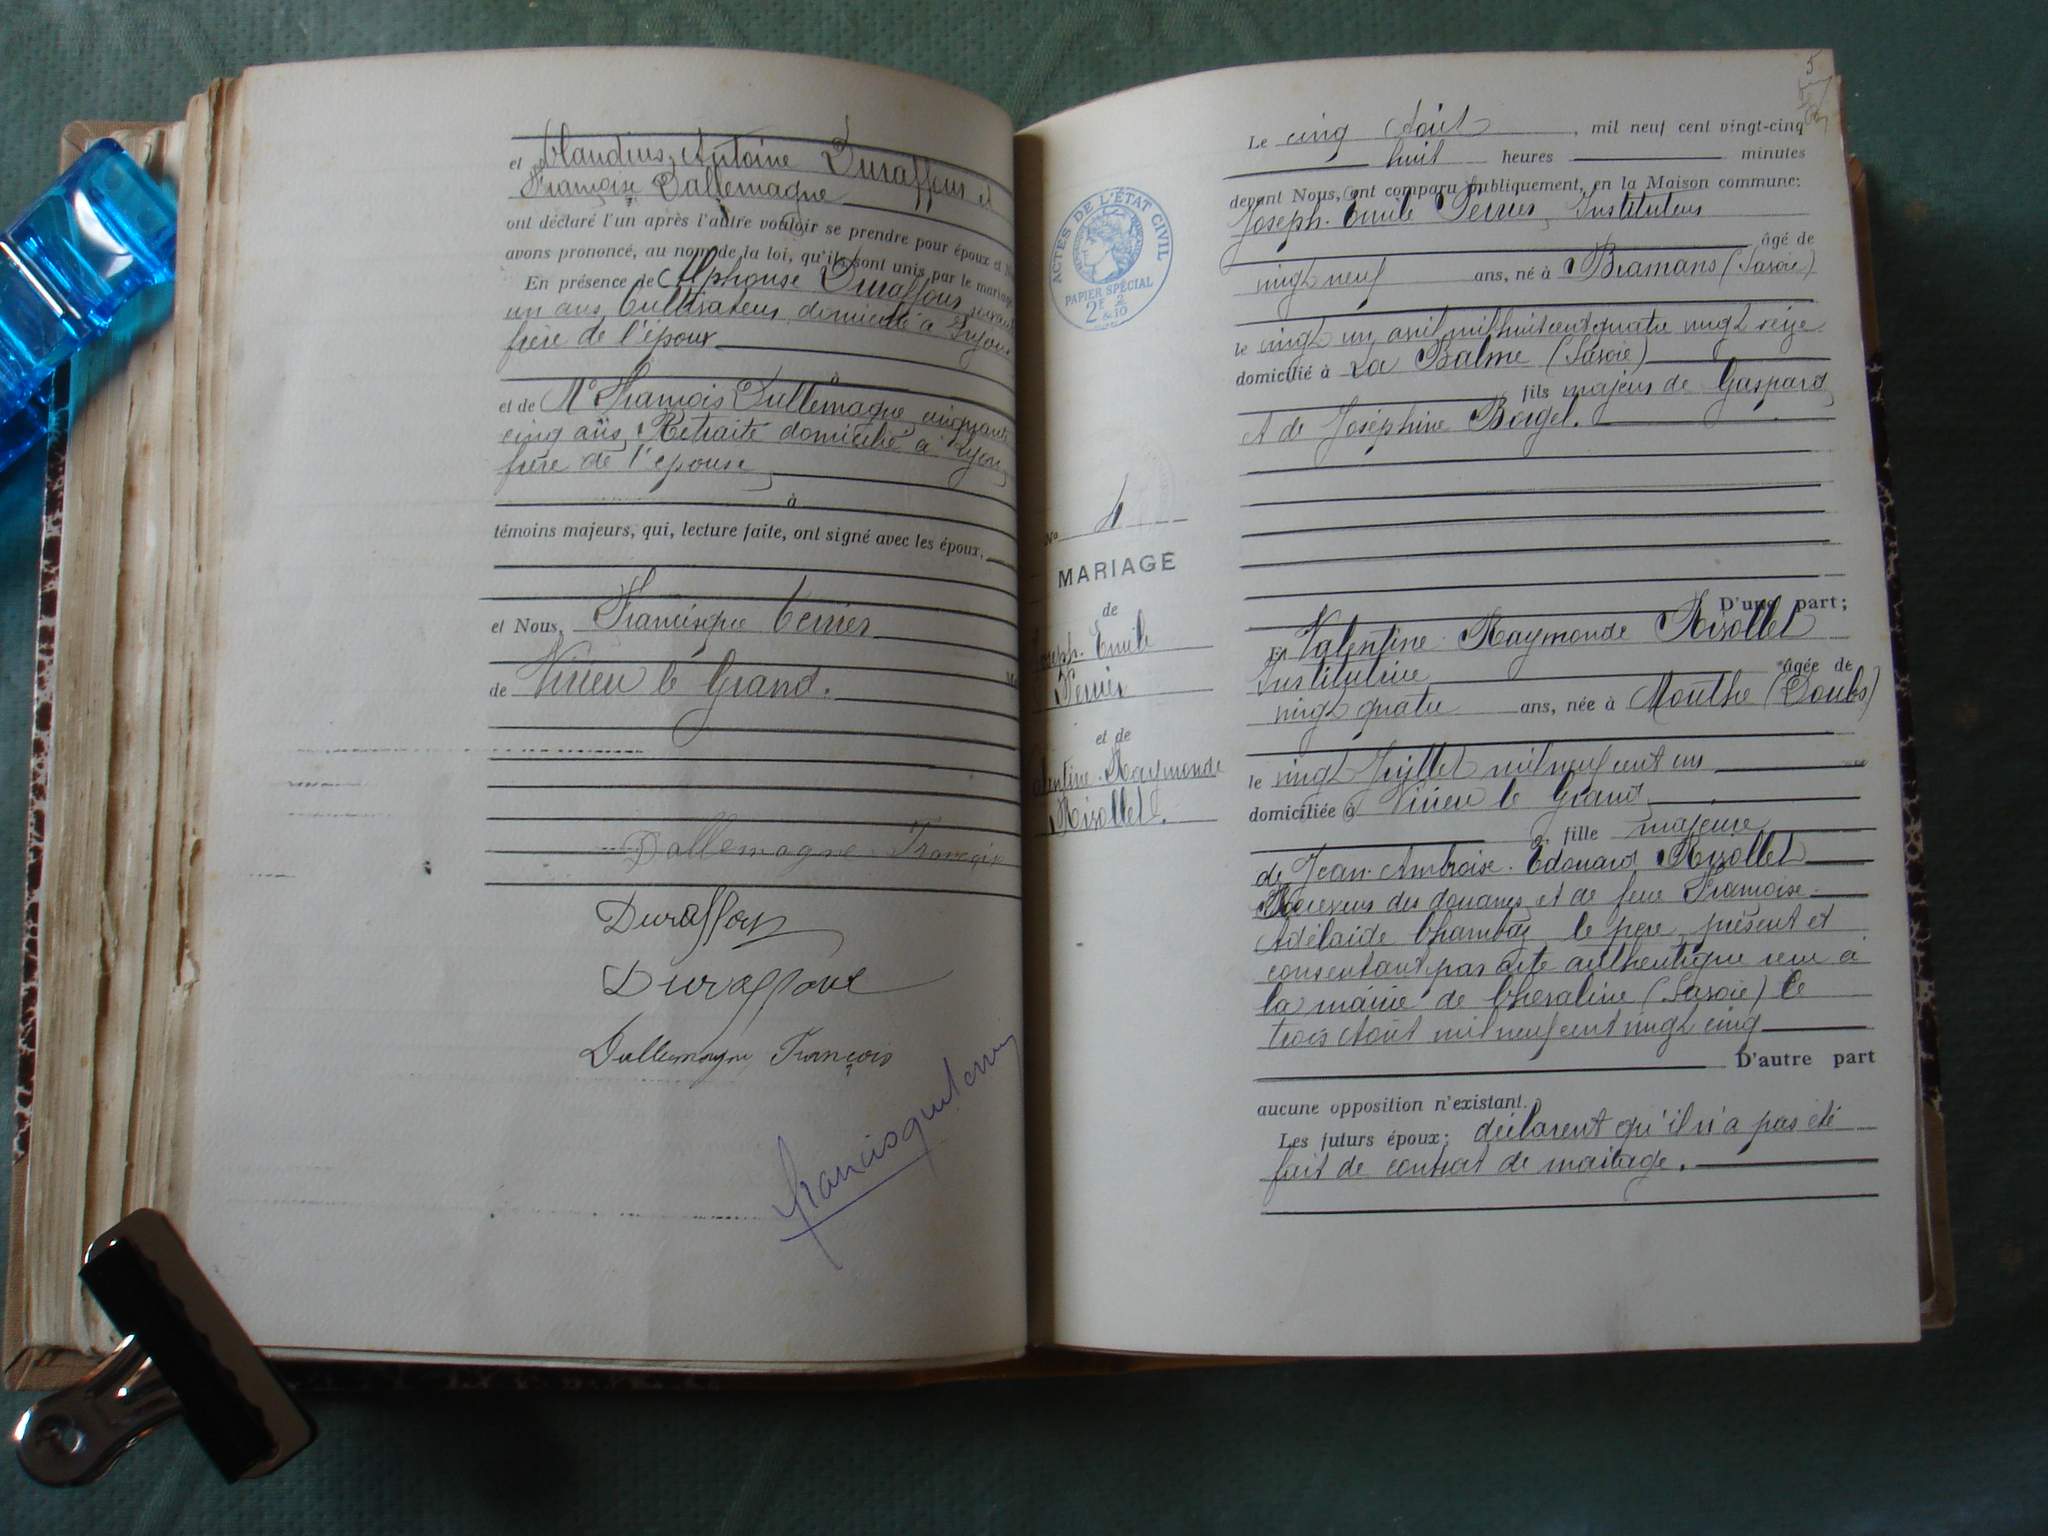 et Claudius Antoine Duraffour et
Françoise Dallemagne
ont déclaré l'un après l'autre vouloir se prendre pour époux et
avons prononcé, au nom de la loi, qu'ils sont unis par le mariage
En présence de Alphonse Duraffour,
un ans, Cultivateur, domicilié à
frère de l'époux
à
et de Mr François Dallemagne, cinquante
cinq ans, Retraité domicilié à Lyon,
frère de l'épouse,
à
témoins majeurs, qui, lecture faite, ont signé avec les époux,
et Nous, Francisque Terrier
de Virieu le Grand.
Dallemagne Françoise
Duraffour
Duraffour
Dallemagne François
5
Le cinq Août, mil neuf cent vingt-cinq
huit heures minutes
devant Nous, ont comparu publiquement, en la Maison commune:
Joseph-Emile Perrier, Instituteur
âgé de
vingt neuf ans, né à Bramans (Savoie)
le vingt un avril mil huit cent quatre vingt seize
domicilié à La Balme (Savoie)
fils majeur de Gaspard
et de Joséphine Borgel.
D'une part;
Et Valentine-Raymonde Rizollet
Institutrice âgée de
vingt quatre ans, née à Mouthe (Doubs)
le vingt Juillet mil neuf cent un
domiciliée à Virieu le Grand
fille majeure
de Jean-Ambroise-Edouard Rizollet
Receveur des douanes, et de feue Françoise-
Adélaïde le père, présent et
consentant par acte authentique reçu à
la mairie de Cheraline (Savoie) le
trois Août mil neuf cent vingt cinq
D'autre part
aucune opposition n'existant.
Les futurs époux; déclarent qu'il n'a pas été
fait de contrat de mariage.
ACTES DE L'ÉTAT CIVIL
PAPIER SPÉCIAL
2F 2/10
No 4
MARIAGE
de
Joseph-Emile
Perrier
et de
Valentine-Raymonde
Rizollet.